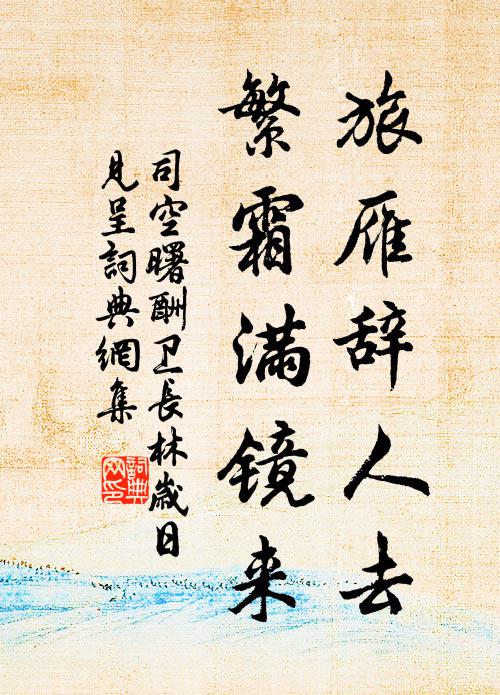 旅雁辞人去
繁霜满镜来
司空曙酬卫长林歲日
见呈詞典網集
詞典
网印